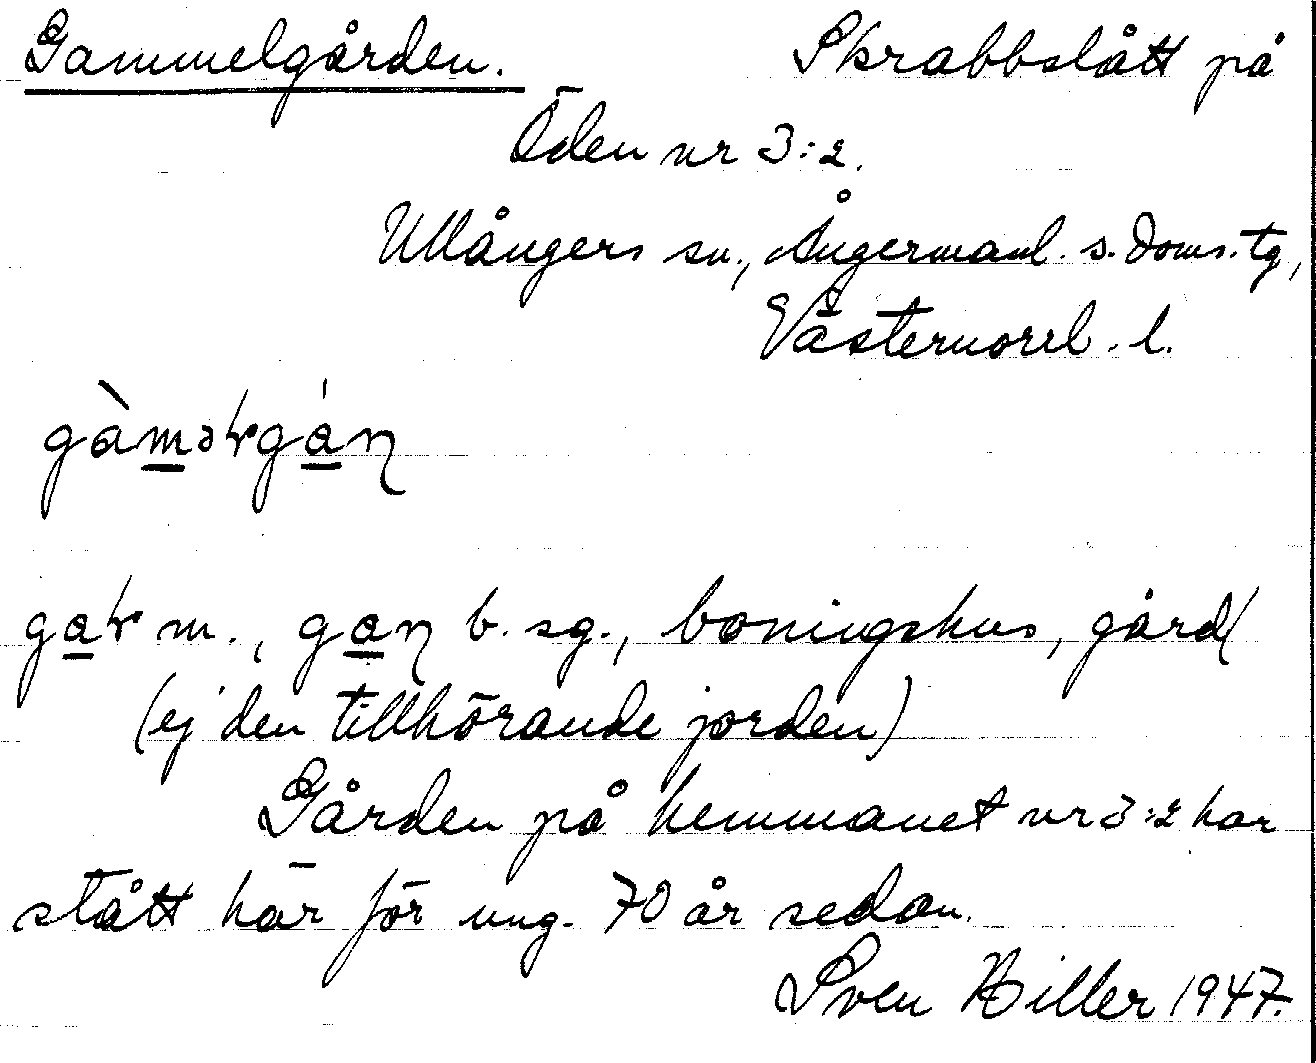 Gammelgården. Skrabbslått på
Öden nr 3:2.
Ullångers sn., Ångermanl. s. doms. tg,
Västernorrl. l.
b. sg., boningshus, gård
(ej den tillhörande jorden)
Gården på hemmanet nr 3:2 har
stått här för ung. 70 år sedan.
Sven Hiller 1947.